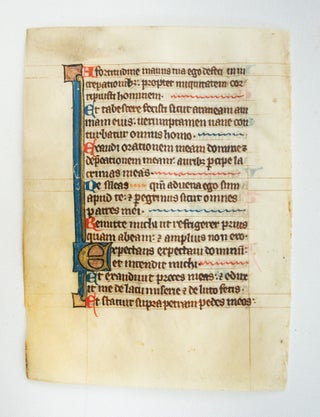 A fortitudine manus tue ego defeci in in
crepationibꝫ: propter iniquitatem cor
ripuisti hominem.
Et tabescere fecisti sicut araneam ani
mam eius: uerumptamen uane con
turbatur omnis homo.
Exaudi orationem meam domine ⁊
dep̄cationem meam: auribꝫ percipe la
crimas meas
Ne sileas qm̄ aduena ego sum
apud te: ⁊ peregrinus sicut omnes
patres mei.
Remitte michi ut refrigerer prius
quam abeam: ⁊ amplius non ero.
Expectans expectaui dominū:
et intendit michi
Et exaudiuit preces meas: ⁊ eduxit
it me de lacu miserie ⁊ de luto fecis.
Et statuit supra petram pedes meos: